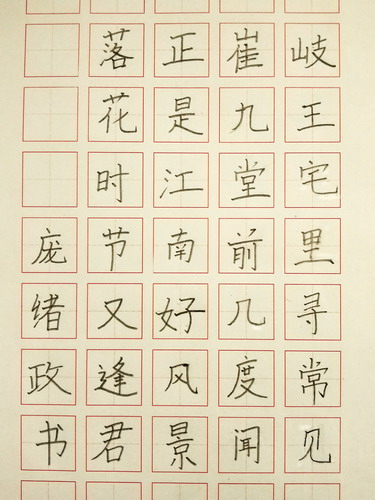 岐王宅里寻常见
崔九堂前几度闻
正是江南好风景
落花时节又逢君
庞绪政书